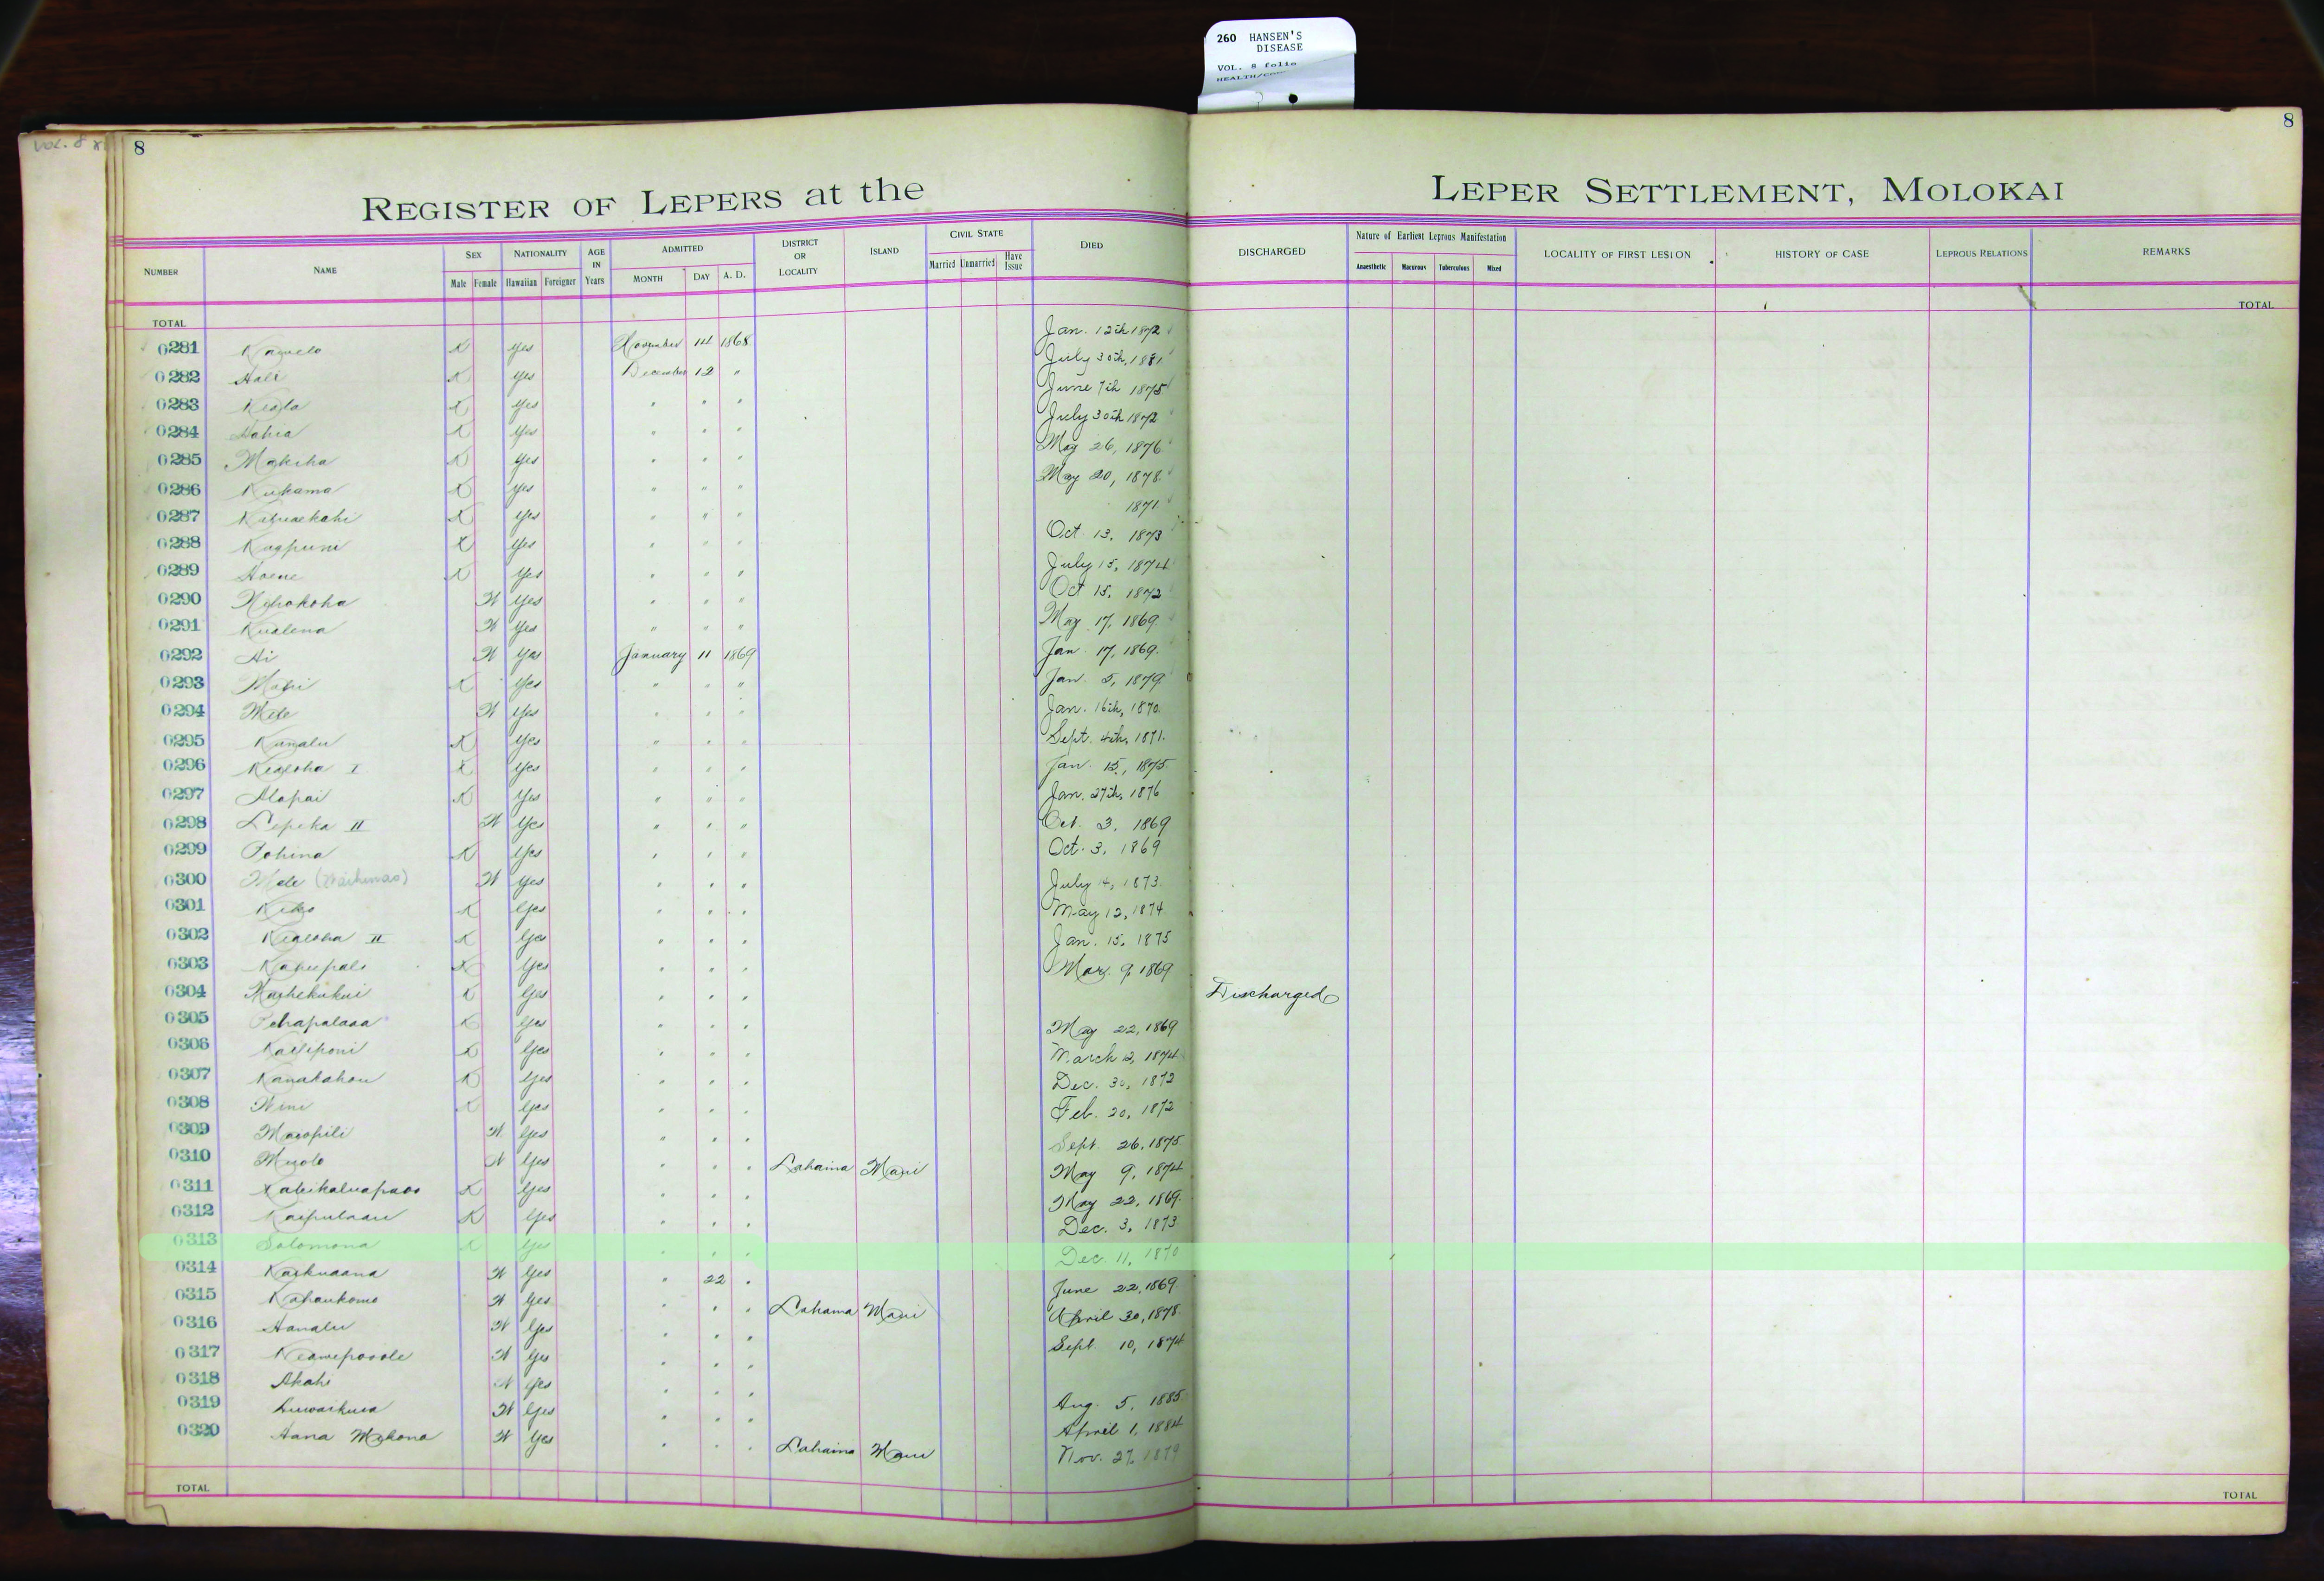 260 HANSEN'S
DISEASE
VOL. 8 folio
8
8
REGISTER OF LEPERS at the LEPER SETTLEMENT, MOLOKAI
NUMBER NAME SEX Male Female NATIONALITY Hawaiian Foreigner AGE IN Years ADMITTED MONTH DAY A. D. DISTRICT OR LOCALITY ISLAND CIVIL STATE Married Unmarried Have Issue DIED DISCHARGED Nature of Earliest Leprous Manifestation Anaesthetic Macurous Tuberculous Mixed LOCALITY OF FIRST LESION HISTORY OF CASE LEPROUS RELATIONS REMARKS
TOTAL TOTAL
0281 K Yes November 14 1868 Jan. 12th 1872
0282 Hali K Yes December 12 " July 30th, 1881
0283 K Yes " " " June 7th 1875
0284 K Yes " " " July 30th 1872
0285 K Yes " " " May 26, 1876
0286 K Yes " " " May 20, 1878
0287 K Yes " " " 1871
0288 K Yes " " " Oct 13, 1873
0289 K Yes " " " July 15, 1874
0290 W Yes " " " Oct 15, 1872
0291 Kualena W Yes " " " May 17, 1869
0292 Ai W Yes January 11 1869 Jan 17, 1869
0293 K Yes " " " Jan 5, 1879
0294 Mele W Yes " " " Jan. 16th, 1870
0295 K Yes " " " Sept. 4th, 1871
0296 Kealoha I K Yes " " " Jan. 15, 1875
0297 Alapai K Yes " " " Jan. 27th, 1876
0298 Lepeka II W Yes " " " Oct. 3, 1869
0299 Pohina K Yes " " " Oct. 3, 1869
0300 Mele W Yes " " " July 4, 1873
0301 K Yes " " " May 12, 1874
0302 Kealoha II K Yes " " " Jan. 15, 1875
0303 K Yes " " " Mar. 9, 1869
0304 K Yes " " " Discharged
0305 K Yes " " " May 22, 1869
0306 Kailiponi K Yes " " " March 12, 1874
0307 Kanakahou K Yes " " " Dec. 30, 1872
0308 K Yes " " " Feb. 20, 1872
0309 Maeopili W Yes " " " Sept 26, 1875
0310 W Yes " " " Lahaina Maui May 9, 1874
0311 K Yes " " " May 22, 1869
0312 K Yes " " " Dec. 3, 1873
0313 Solomona K Yes " " " Dec. 11, 1870
0314 W Yes " 22 " June 22, 1869
0315 Kahaukomo W Yes " " " Lahaina Maui April 30, 1878
0316 Hanalu W Yes " " " Sept. 10, 1874
0317 Keawepoole W Yes " " "
0318 Akahi W Yes " " " Aug. 5, 1885
0319 W Yes " " " April 1, 1884
0320 Hana W Yes " " " Lahaina Maui Nov. 27, 1879
TOTAL TOTAL